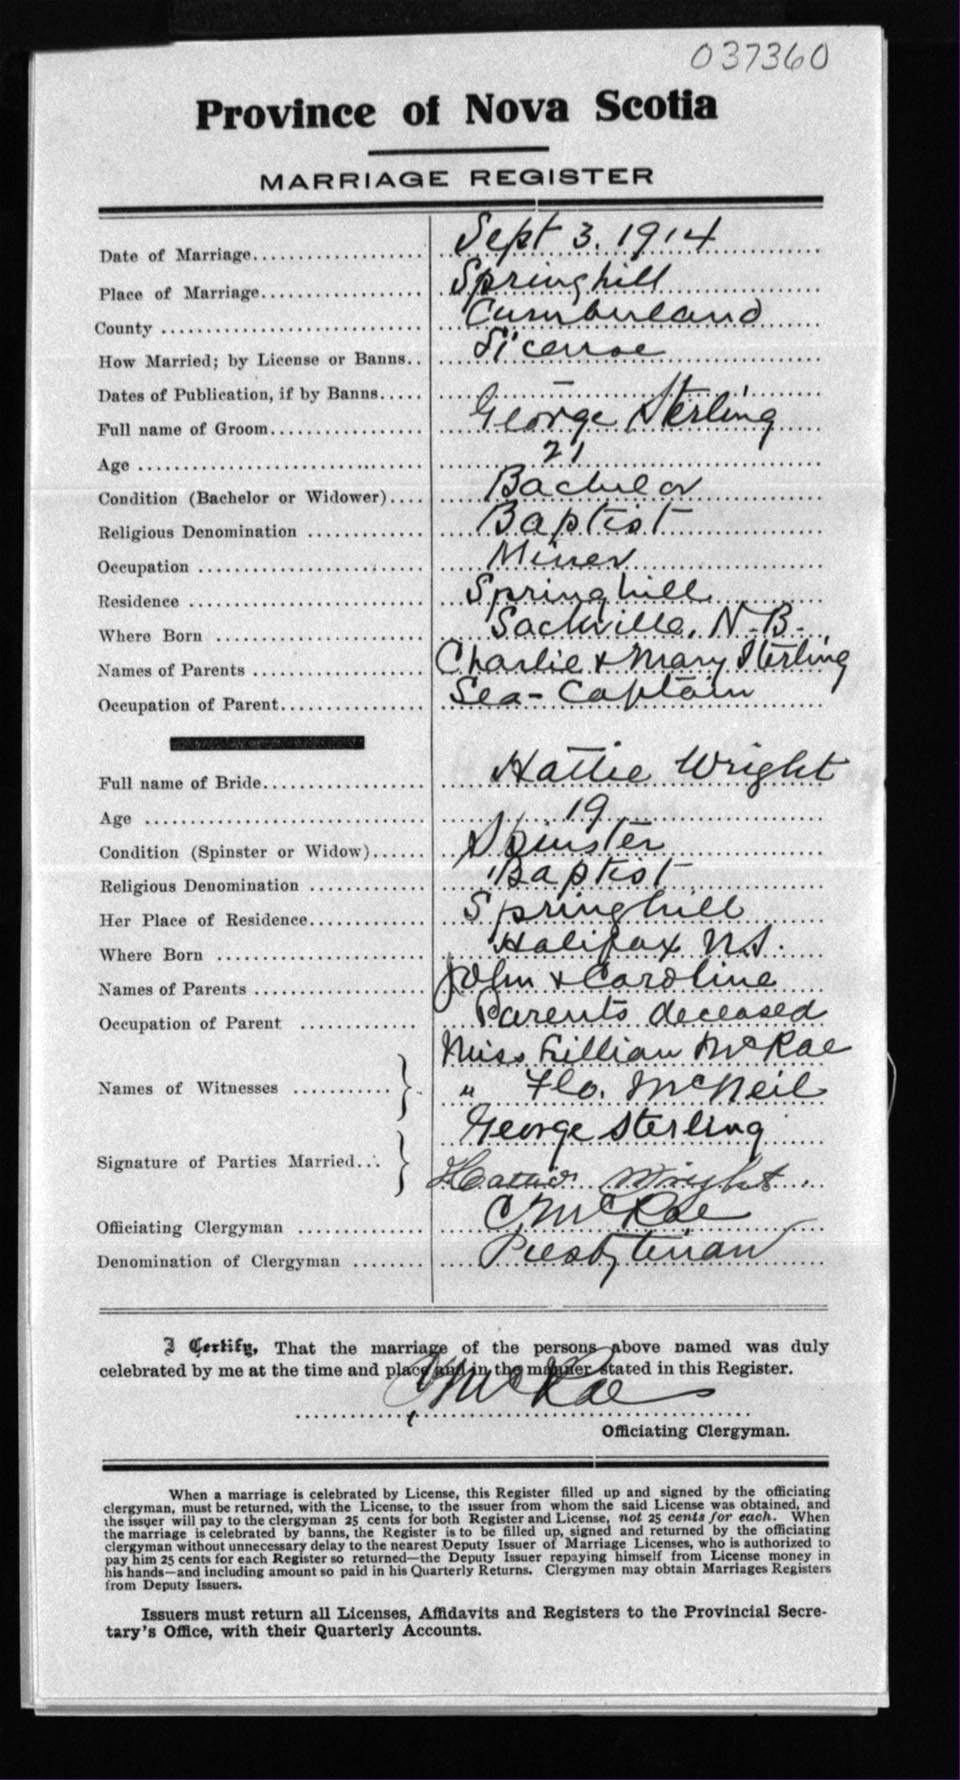 037360
Province of Nova Scotia
MARRIAGE REGISTER
Date of Marriage.................... Sept 3. 1914
Place of Marriage................... Springhill
County .............................. Cumberland
How Married; by License or Banns.. License
Dates of Publication, if by Banns..... —
Full name of Groom.................. George Sterling
Age ................................. 21
Condition (Bachelor or Widower).... Bachelor
Religious Denomination ............. Baptist
Occupation .......................... Miner
Residence ........................... Springhill
Where Born ........................ Sackville, N-B-
Names of Parents .................... Charlie & Mary Sterling
Occupation of Parent................. Sea-Captain
Full name of Bride................... Hattie Wright
Age ................................ 19
Condition (Spinster or Widow)...... Spinster
Religious Denomination ............. Baptist
Her Place of Residence............. Springhill
Where Born ........................ Halifax N.S.
Names of Parents .................... John & Caroline
Occupation of Parent ............. Parents deceased
Miss Lillian McRae
Names of Witnesses ........... } " Flo. McNeil
George Sterling
Signature of Parties Married... } Hattie Wright
Officiating Clergyman ............. C. McRae
Denomination of Clergyman ........ Presbyterian
I Certify, That the marriage of the persons above named was duly
celebrated by me at the time and place and in the manner stated in this Register.
McRae
Officiating Clergyman.
When a marriage is celebrated by License, this Register filled up and signed by the officiating
clergyman, must be returned, with the License, to the issuer from whom the said License was obtained, and
the issuer will pay to the clergyman 25 cents for both Register and License, not 25 cents for each. When
the marriage is celebrated by banns, the Register is to be filled up, signed and returned by the officiating
clergyman without unnecessary delay to the nearest Deputy Issuer of Marriage Licenses, who is authorized to
pay him 25 cents for each Register so returned—the Deputy Issuer repaying himself from License money in
his hands—and including amount so paid in his Quarterly Returns. Clergymen may obtain Marriages Registers
from Deputy Issuers.
Issuers must return all Licenses, Affidavits and Registers to the Provincial Secre-
tary's Office, with their Quarterly Accounts.